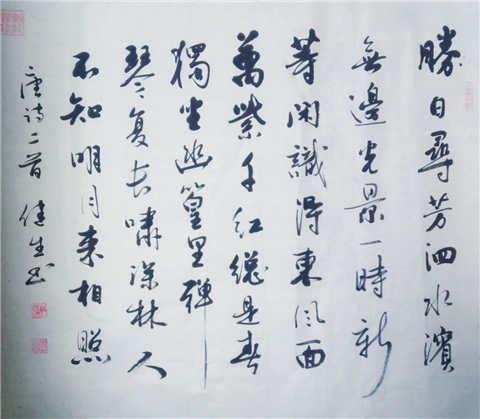 勝日尋芳泗水濱
無邊光景一時新
等闲識得東风面
萬紫千红總是春
獨坐幽篁里彈
琴复长嘯深林人
不知明月来相照
唐诗二首 健生书